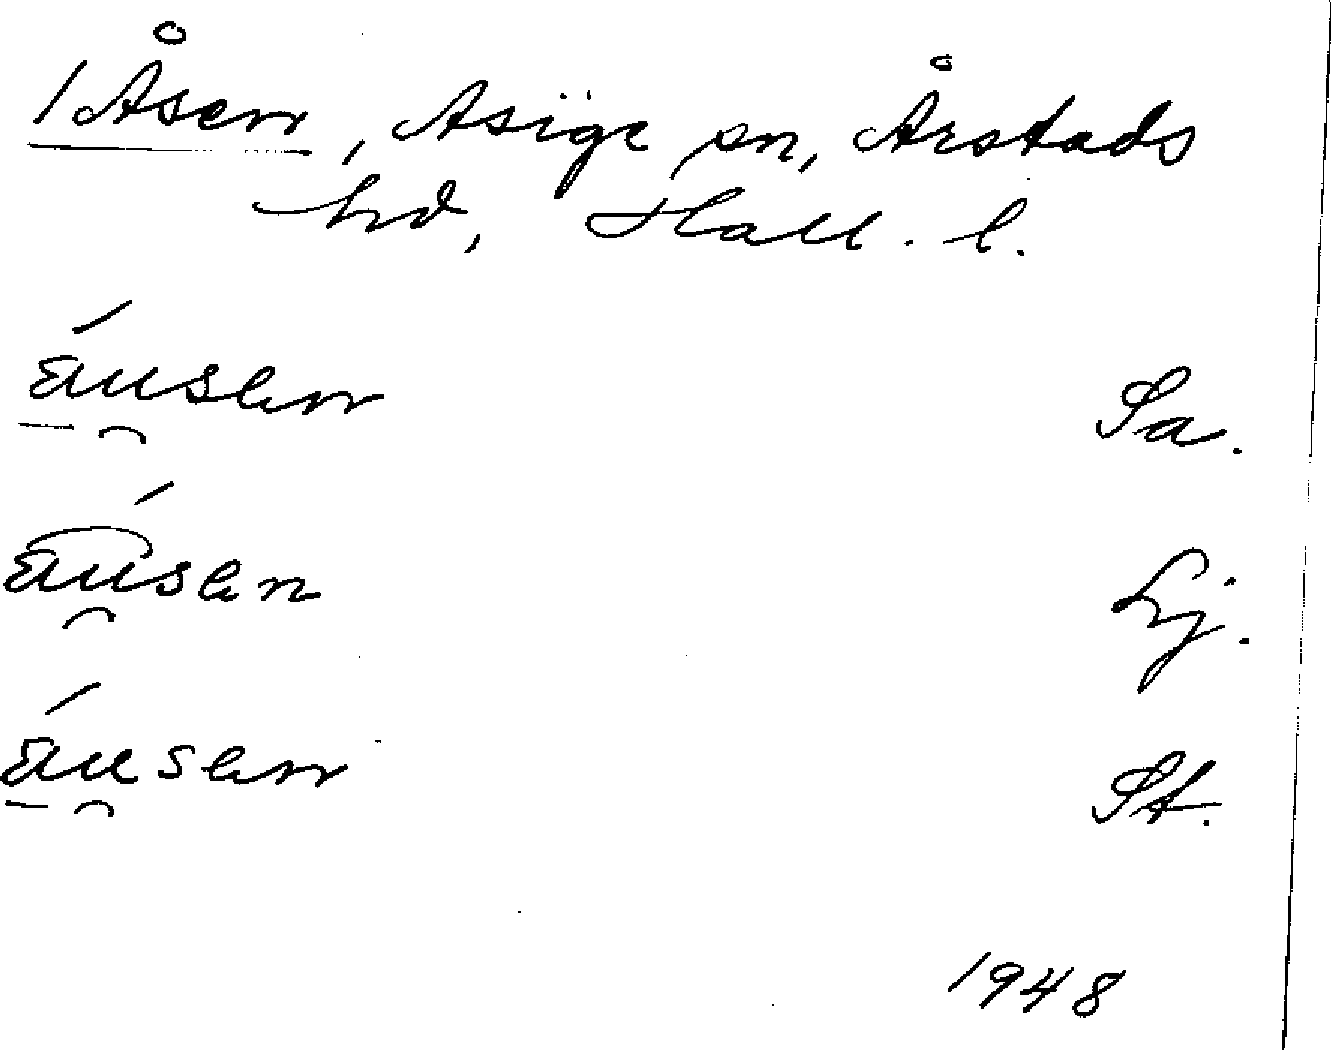 /Åsen, Asige sn, Årstads
hd, Hall. l.
áusen Sa.
áusen Lj.
áusen St.
1948